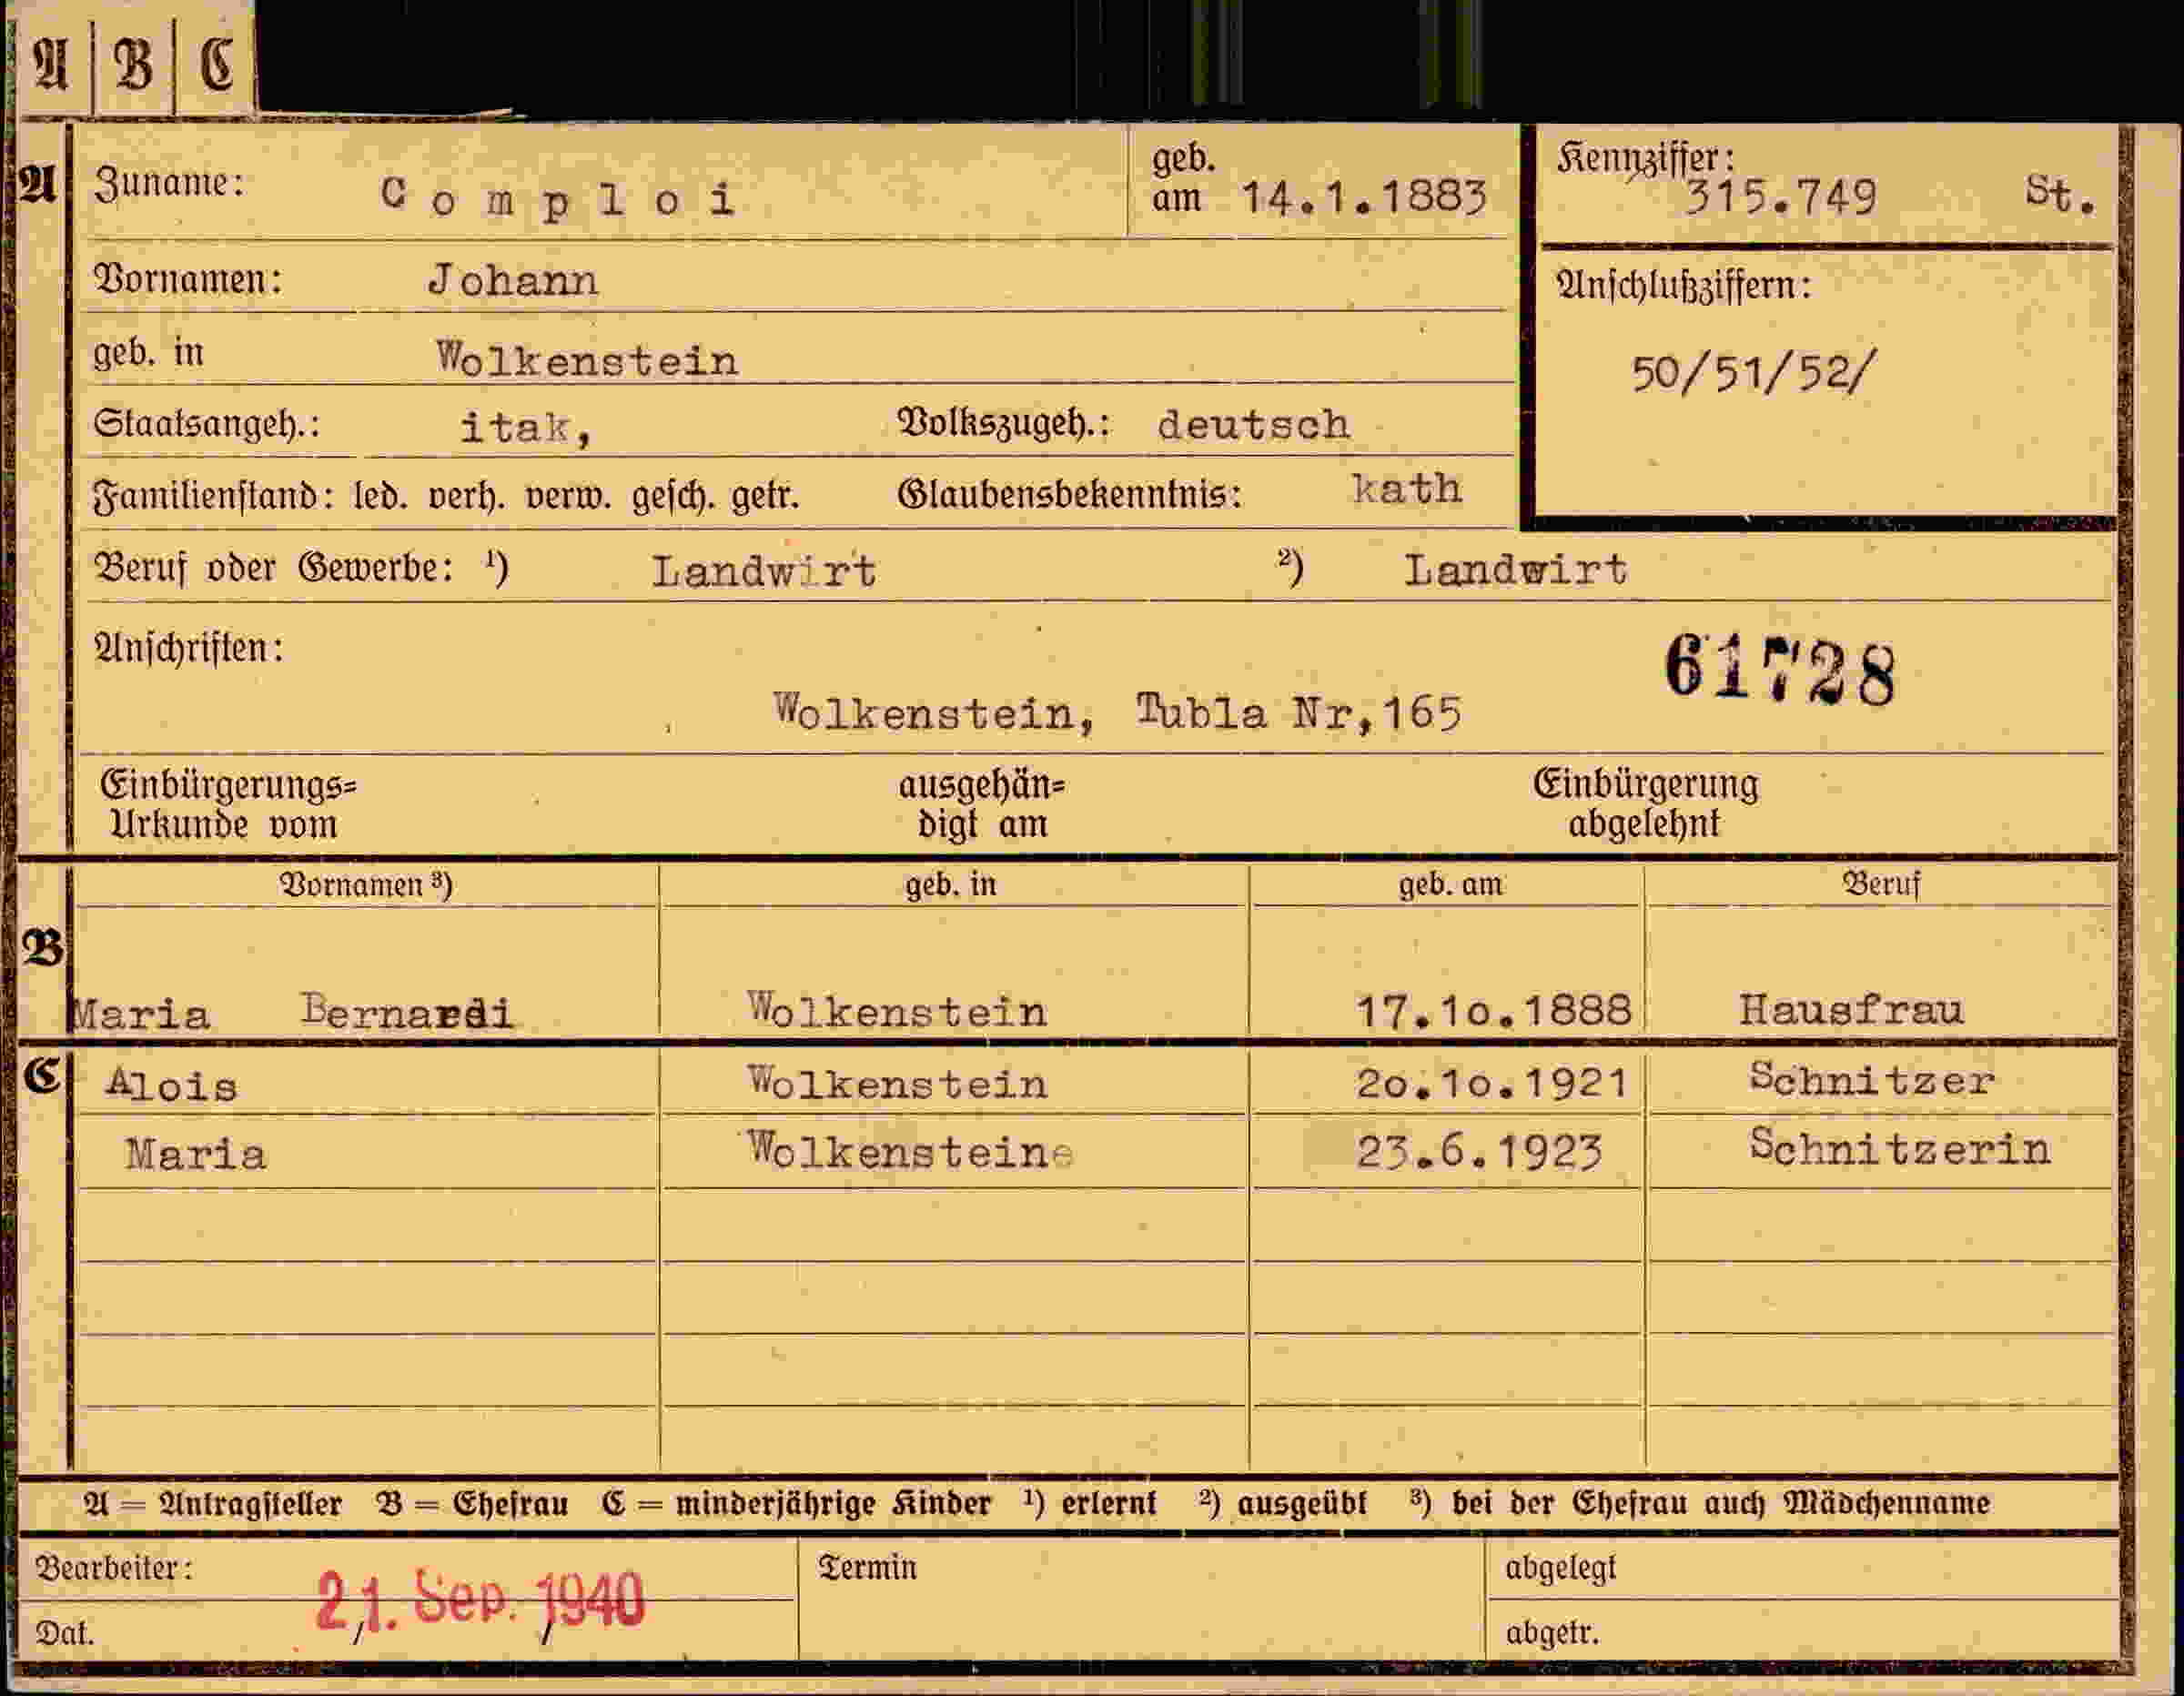 A B C
A Zuname: Comploi geb. am 14.1.1883 Kennziffer: 315.749 St.
Vornamen: Johann Anschlußziffern:
geb. in Wolkenstein 50/51/52/
Staatsangeh.: itak, Volkszugeh.: deutsch
Familienstand: led. verh. verw. gesch. getr. Glaubensbekenntnis: kath
Beruf oder Gewerbe: ¹) Landwirt ²) Landwirt
Anschriften: 61728
Wolkenstein, Tubla Nr,165
Einbürgerungs= ausgehän= Einbürgerung
Urkunde vom digt am abgelehnt
Vornamen ³) geb. in geb. am Beruf
B
Maria Bernardi Wolkenstein 17.10.1888 Hausfrau
C Alois Wolkenstein 20.10.1921 Schnitzer
Maria Wolkensteine 23.6.1923 Schnitzerin
A = Antragsteller B = Ehefrau C = minderjährige Kinder ¹) erlernt ²) ausgeübt ³) bei der Ehefrau auch Mädchenname
Bearbeiter: Termin abgelegt
21. Sep. 1940
Dat. abgetr.